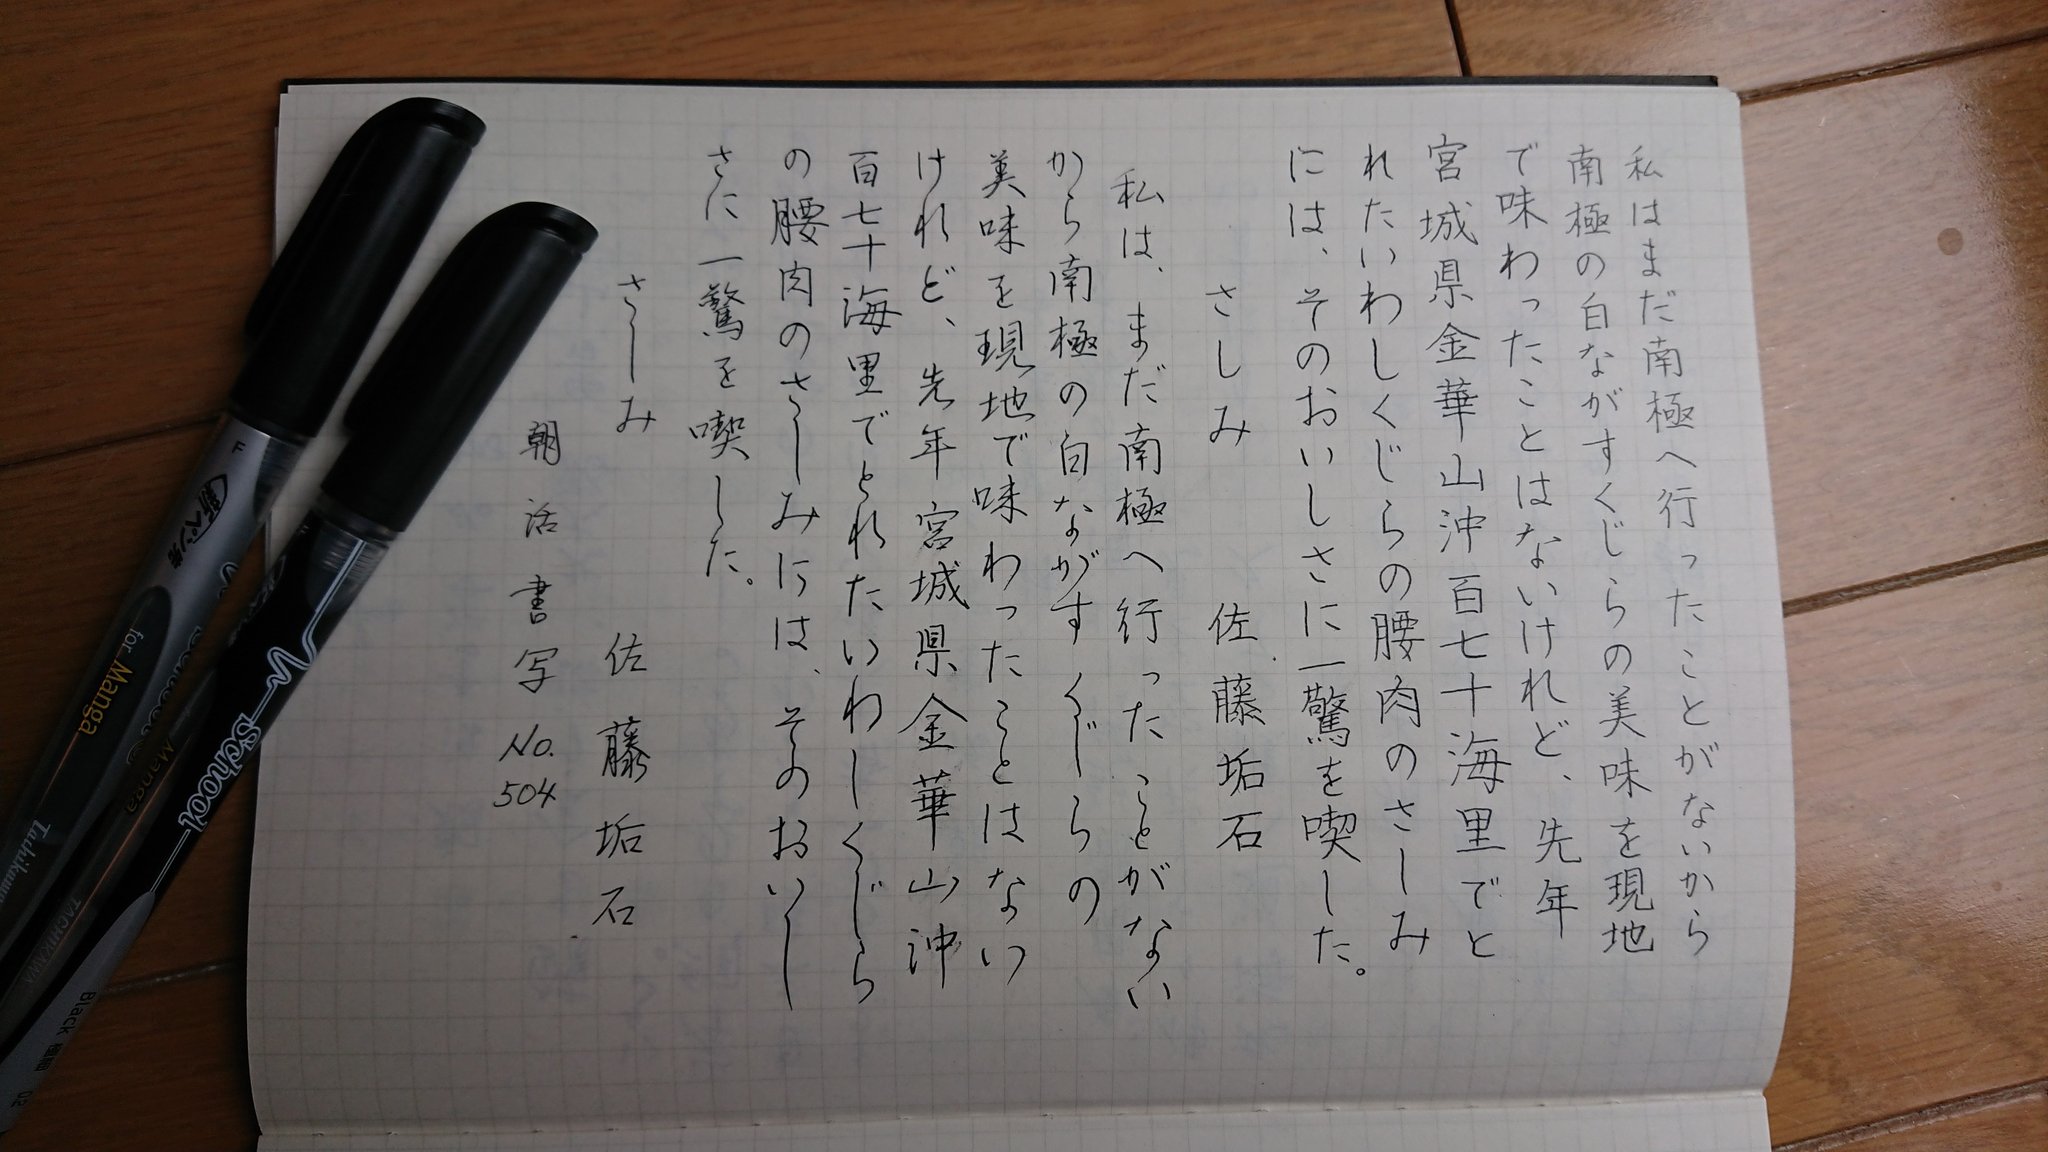 私はまだ南極へ行ったことがないから
南極の白ながすくじらの美味を現地
で味わったことはないけれど、先年
宮城県金華山沖百七十海里でと
れたいわしくじらの腰肉のさしみ
には、そのおいしさに一驚を喫した。
さしみ 佐藤垢石
私は、まだ南極へ行ったことがない
から南極の白ながすくじらの
美味を現地で味わったことはない
けれど、先年宮城県金華山沖
百七十海里でとれたいわしくじら
の腰肉のさしみには、そのおいし
さに一驚を喫した。
さしみ 佐藤垢石
朝活書写 No.
504
F
新ペン先
School
for Manga
Tachikawa
School
Manga
TACHIKAWA
Black 極細 02